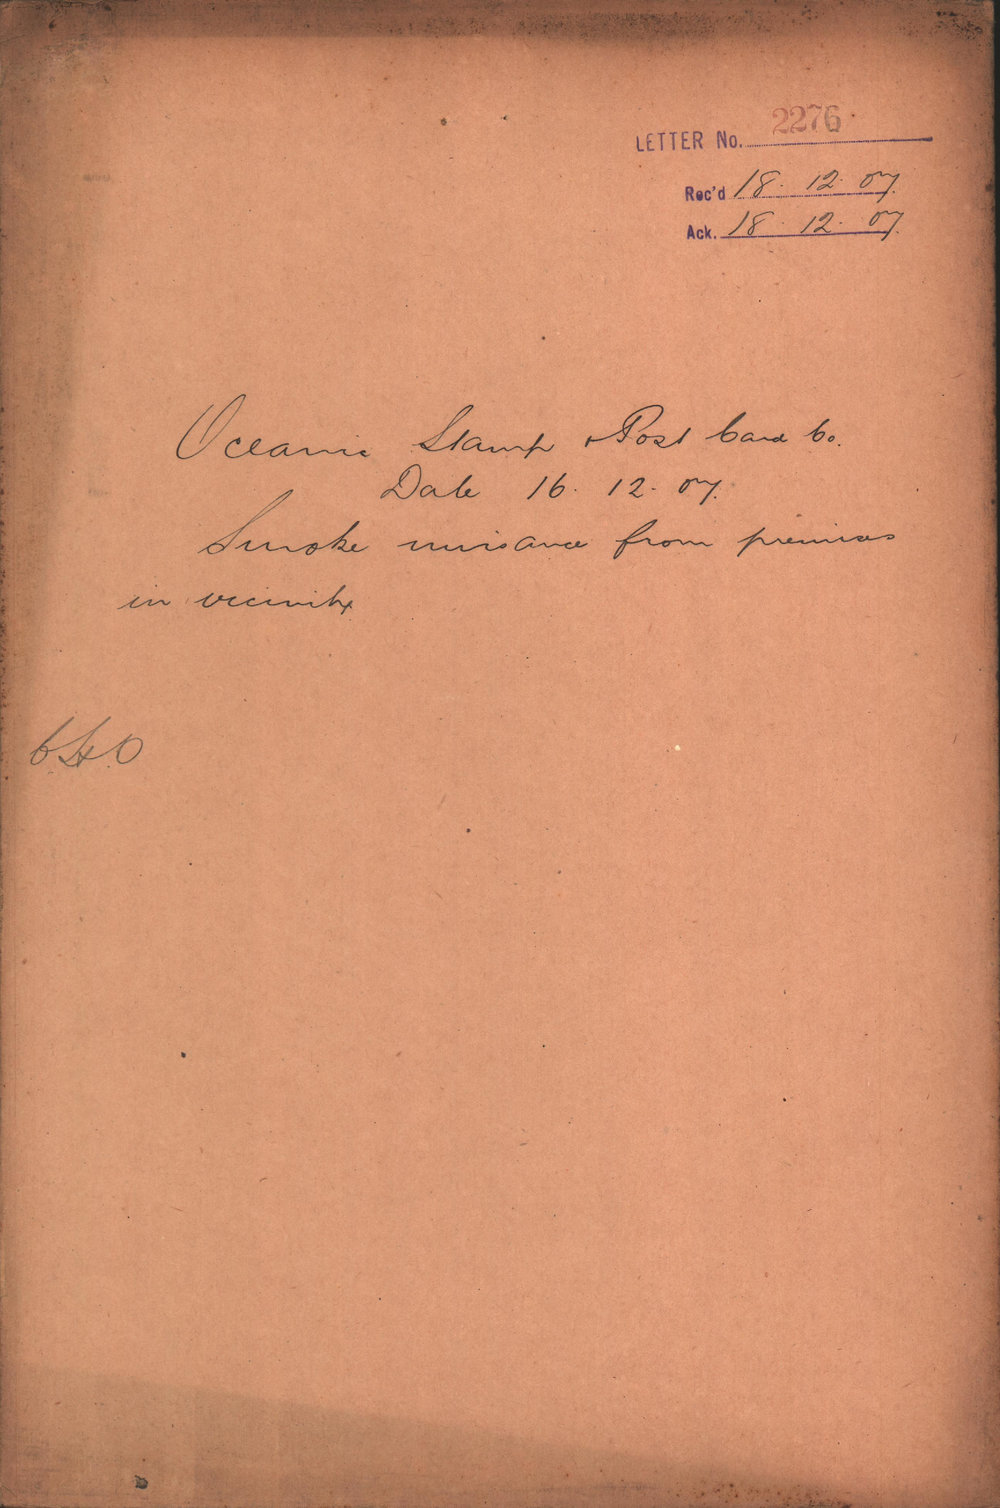 LETTER No. 2276
Rec'd 18. 12. 07.
Ack. 18. 12. 07.
Oceanic Stamp & Post Card Co.
Date 16. 12. 07.
Smoke nuisance from premises
in vicinity
C H O